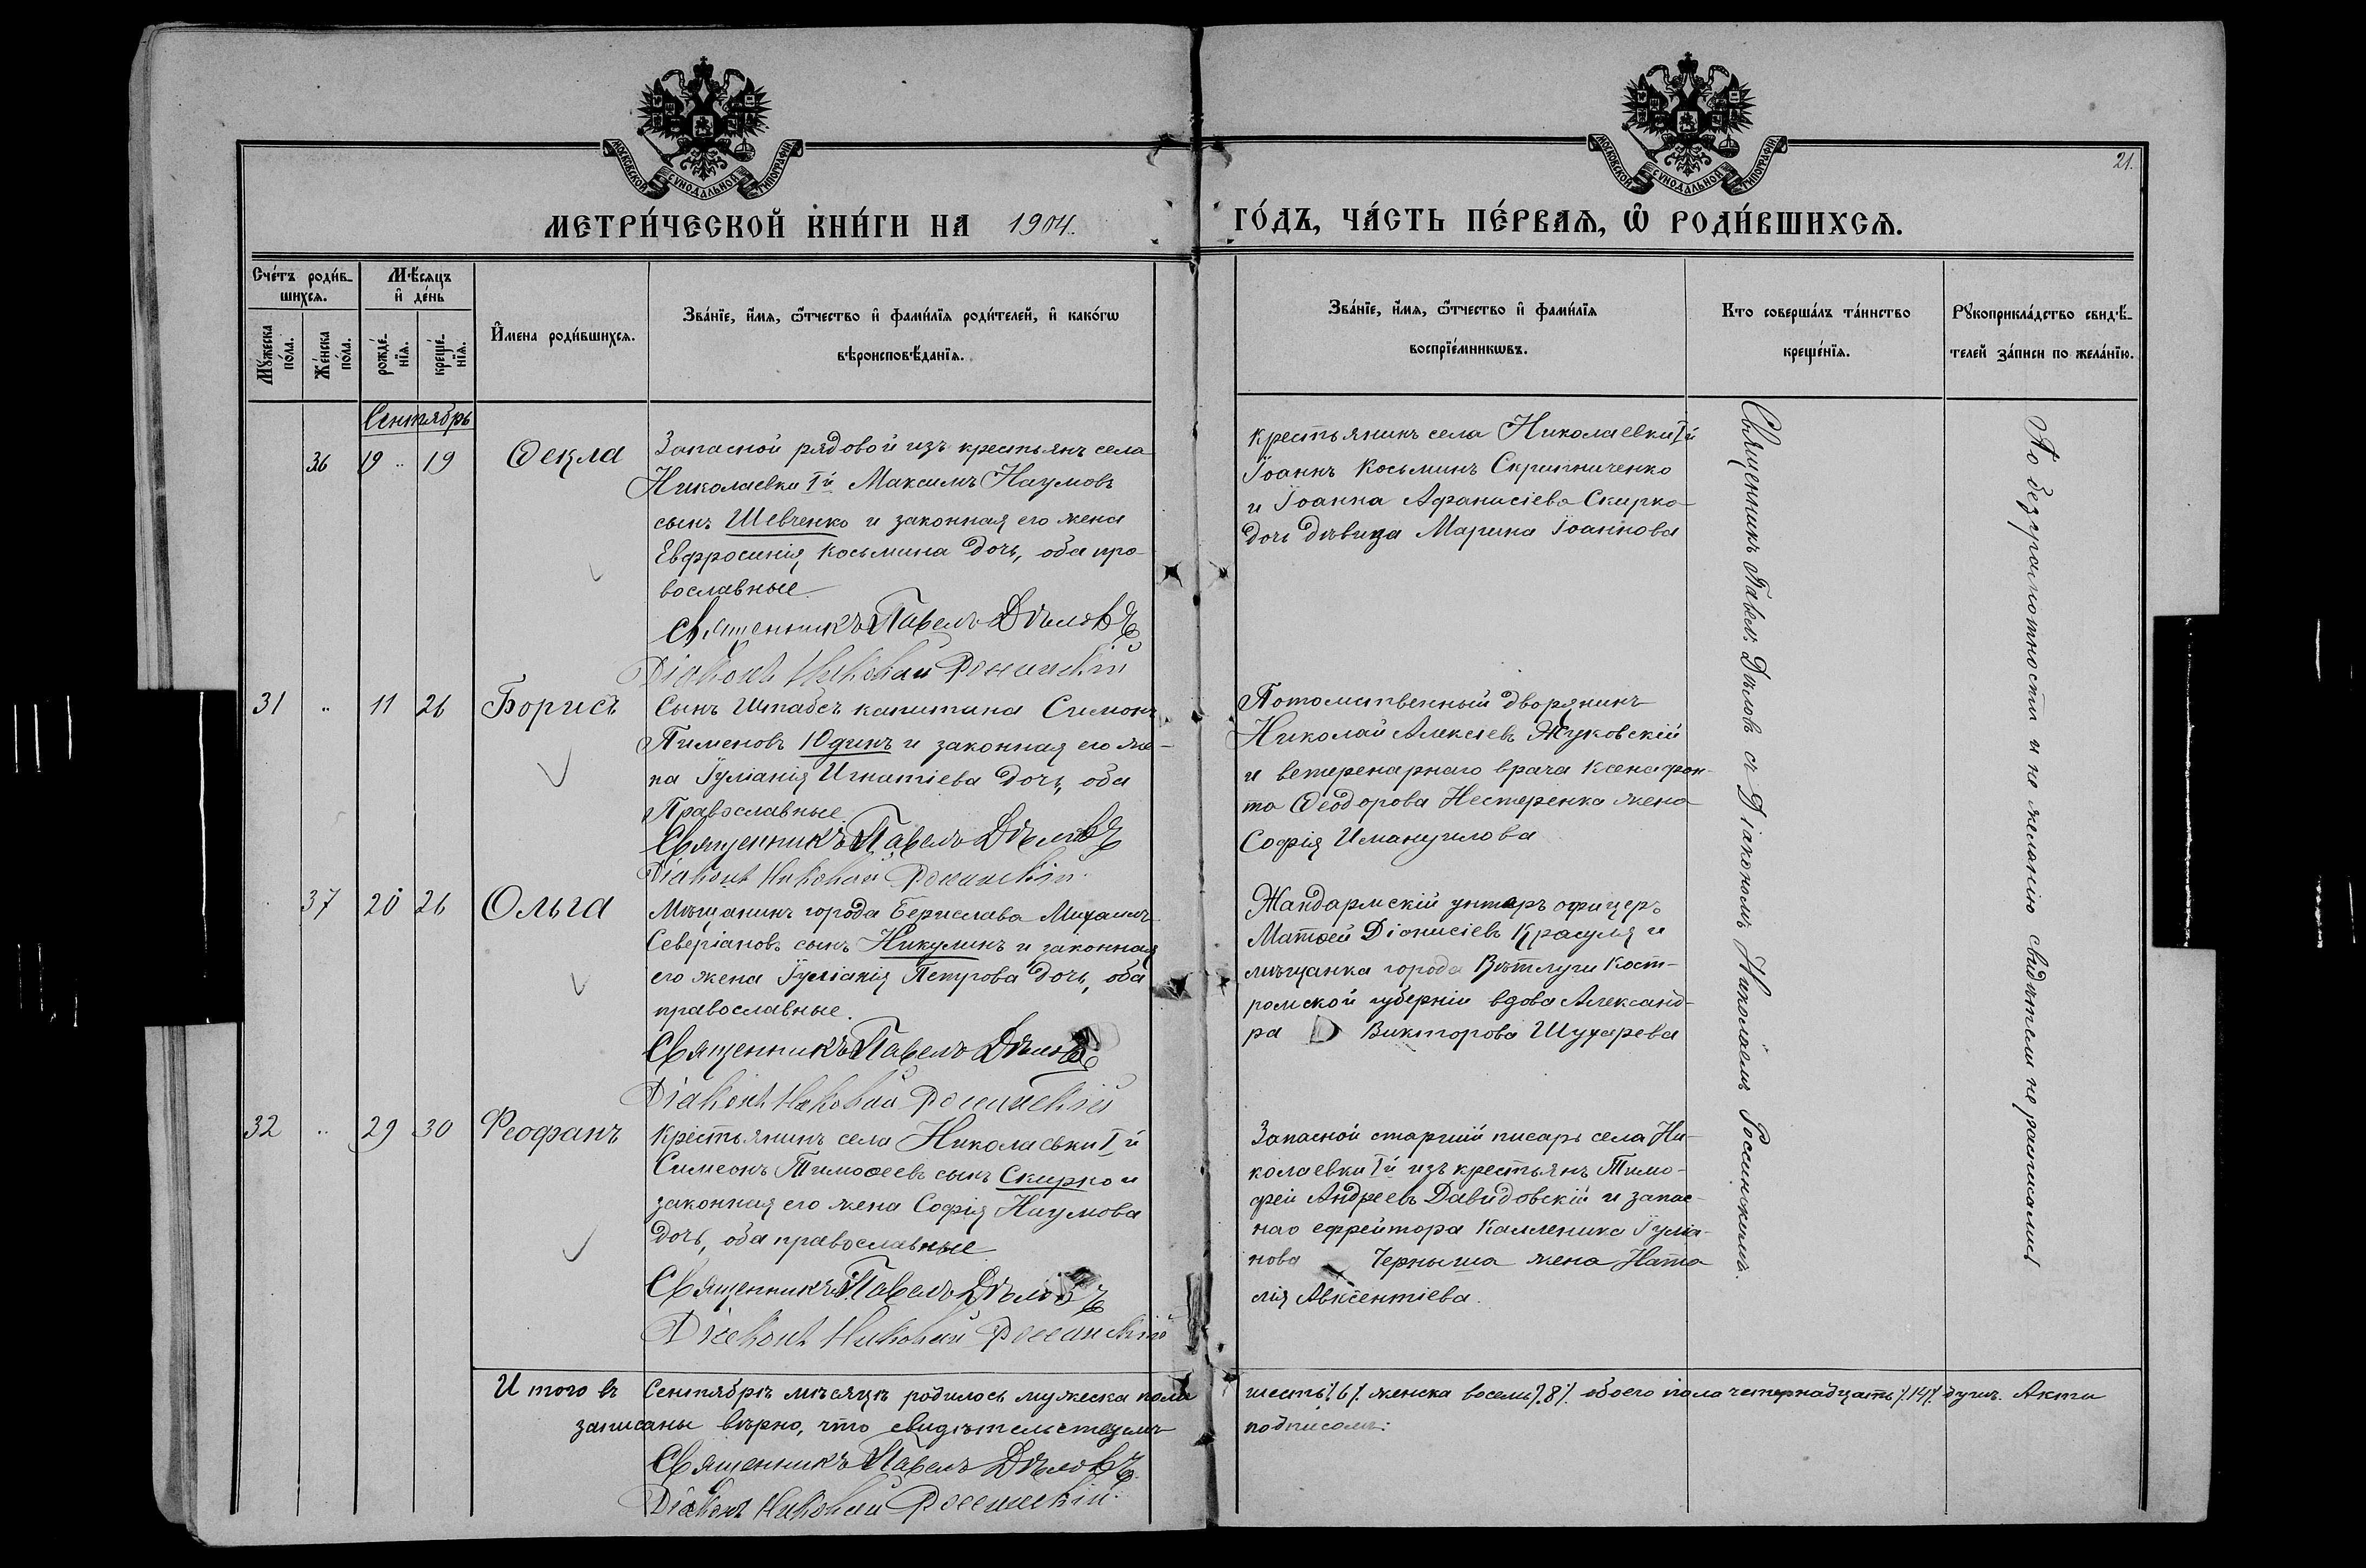 МОСКОВСКОЙ СѴНОДАЛЬНОЙ ТИПОГРАФІИ
МОСКОВСКОЙ СѴНОДАЛЬНОЙ ТИПОГРАФІИ
21.
МЕТРИ́ЧЕСКОЙ КНИ́ГИ НА 1904.
ГО́ДЪ, ЧА́СТЬ ПЕ́РВАѦ, Ѡ҆ РОДИ́ВШИХСѦ.
Сче́тъ роди́в-
шихсѧ.
Мѣ́сѧцъ
и҆ де́нь
Мꙋ́жеска
по́ла.
Же́нска
по́ла.
рожде́-
нїѧ.
креще́-
нїѧ.
И҆мена роди́вшихсѧ.
Зва́нїе, и҆́мѧ, ѻ҆́тчество и҆ фами́лїѧ роди́телей, и҆ како́гѡ
вѣроисповѣ́данїѧ.
Зва́нїе, и҆́мѧ, ѻ҆́тчество и҆ фами́лїѧ
воспрїе́мникѡвъ.
Кто соверша́лъ та́инство
креще́нїѧ.
Рꙋкоприкла́дство свидѣ́-
телей за́писи по жела́нїю.
Сентябрь
36 19 " 19 Ѳекла
Запасной рядовой изъ крестьянъ села
Николаевки Iй Максимъ Наумовъ
сынъ Шевченко и законная его жена
Евфросинія Косьмина дочь, оба пра-
вославные
Священникъ Павелъ Дѣловъ
Діаконъ Николай Росинскій
крестьянинъ села Николаевки Iй
Іоаннъ Косьминъ Скрипниченко
и Іоанна Афанасіева Скирко
дочь дѣвица Марина Іоаннова
31 " 11 26 Борисъ
Сынъ Штабсъ капитана Симонъ
Пименовъ Юдинъ и законная его же-
на Іуліанія Игнатіева дочь, оба
Православные.
Священникъ Павелъ Дѣловъ
Діаконъ Николай Росинскій
Потомственный дворянинъ
Николай Алексіевъ Жуковскій
и ветеренарнаго врача Ксенофон-
та Ѳеодорова Нестеренка жена
Софія Имануилова
37 20 26 Ольга
Мѣщанинъ города Берислава Михаилъ
Северіановъ сынъ Никулинъ и законная
его жена Іуліанія Петрова дочь, оба
православные.
Священникъ Павелъ Дѣловъ
Діаконъ Николай Росинскій
Жандармскій унтеръ офицеръ
Матѳей Діонисіевъ Красуля и
мѣщанка города Вѣтлуги Кост-
ромской губерніи вдова Александ-
ра Викторова Шухарева
32 " 29 30 Феофанъ
Крестьянинъ села Николаевки Iй
Симеонъ Тимоѳеевъ сынъ Скирко и
законная его жена Софія Наумова
дочь, оба православные
Священникъ Павелъ Дѣловъ
Діаконъ Николай Росинскій
Запасной старшій писарь села Ни-
колаевки Iй изъ крестьянъ Тимо-
фей Андреевъ Давидовскій и запас-
наго ефрейтора Каленика Іуліа-
нова Черныша жена Ната
лія Авксентіева.
Священникъ Павелъ Дѣловъ съ Діакономъ Николаемъ Росинскимъ.
По безграмотности и не желанію свидѣтели не расписались
И того въ Сентябрѣ мѣсяцѣ родилось мужеска пола шесть /6/ женска восемь /8/. обоего пола четернадцать /14/ душъ. Акти
записаны вѣрно, что свидѣтельствуемъ подписомъ:
Священникъ Павелъ Дѣловъ
Діаконъ Николай Росинскій